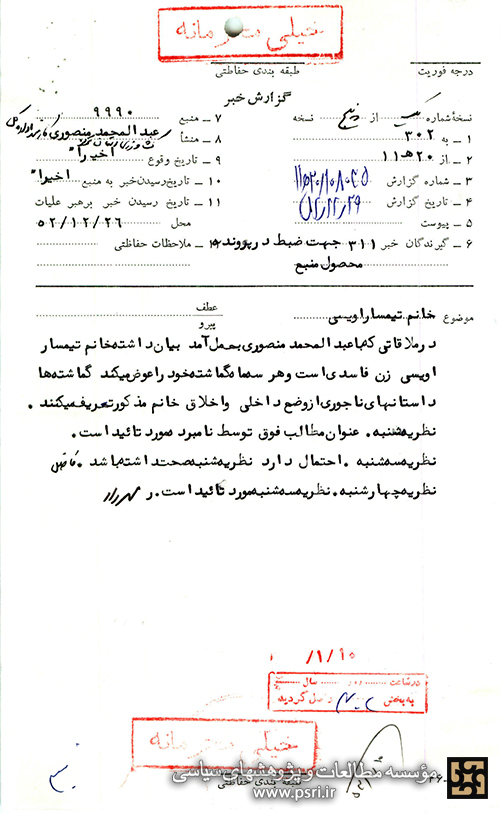 خیلی محرمانه
درجه فوریت
طبقه بندی حفاظتی
گزارش خبر
نسخه شماره یک از پنج نسخه
۱ – به ۳۰۲
۲ – از ۲۰ هـ ۱۱
۳ – شماره گزارش
۴ – تاریخ گزارش
۵ – پیوست
۶ – گیرندگان خبر ۳۱۱ جهت ضبط در پرونده
محصول منبع
۷ – منبع ۹۹۹۰
۸ – منشأ عبدالمحمد منصوری
۹ – تاریخ وقوع اخیرا"
۱۰ – تاریخ رسیدن خبر به منبع اخیرا"
۱۱ – تاریخ رسیدن خبر برهبر عملیات
محل ۵۲/۱۲/۲۶
ملاحظات حفاظتی
موضوع خانم تیمسار اویسی
عطف
پیرو
در ملاقاتی که با عبدالمحمد منصوری بعمل آمد بیان داشته خانم تیمسار
اویسی زن فاسدی است و هر سه ماه گماشته خود را عوض میکند گماشته ها
داستانهای ناجوری از وضع داخلی و اخلاق خانم مذکور تعریف میکنند .
نظریه شنبه . عنوان مطالب فوق توسط نامبرده مورد تائید است .
نظریه سه شنبه . احتمال دارد نظریه شنبه صحت داشته باشد .
نظریه چهارشنبه . نظریه سه شنبه مورد تائید است .
/۱/۱۰
در ساعت سال
به بخش واصل گردید
خیلی محرمانه
طبقه بندی حفاظتی
مؤسسه مطالعات و پژوهشهای سیاسی
www.psri.ir